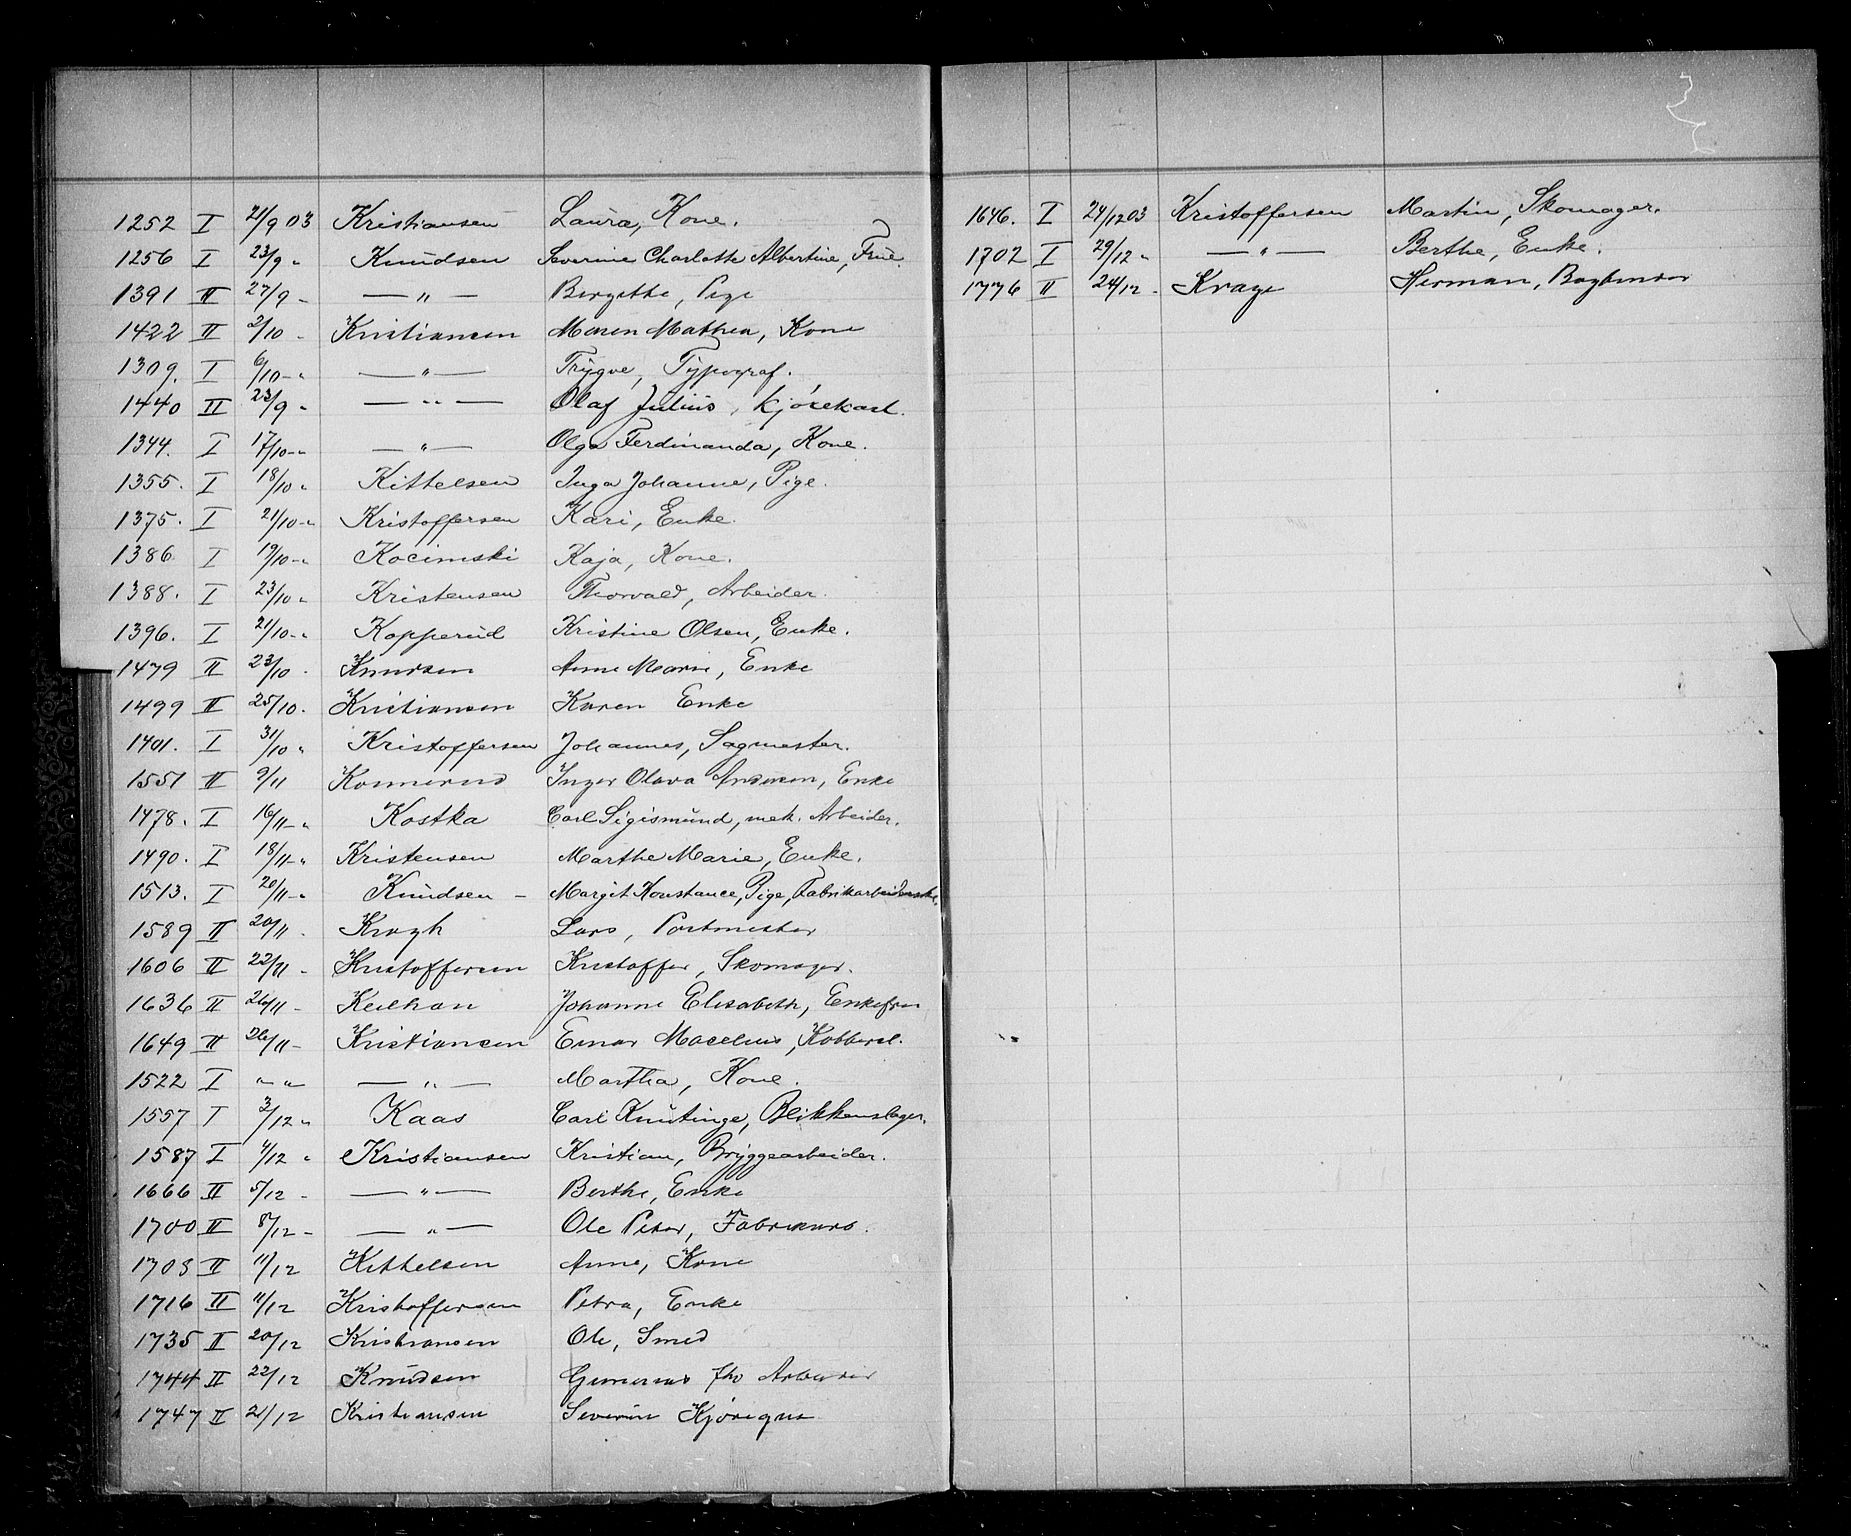 1252 I 21/9 03 Kristiansen Laura, Kone.
1256 I 23/9 " Knudsen Severine Charlotte Albertine, Frue.
1391 II 27/9 - — " — Birgitte, Pige
1422 II 2/10 - Kristiansen Maren Mathea, Kone
1309. I 6/10 - " — " — Trygve, Typograf.
1440 II 23/9 " — " — Olaf Julius, Kjørekarl.
1344. I 17/10 - " — " — Olga Ferdinanda, Kone.
1355. I 18/10 " Kittelsen Inga Johanne, Pige.
1375. I 21/10 - " Kristoffersen Kari, Enke.
1386 I 19/10 - " Kocimski Kaja, Kone.
1388. I 23/10 " Kristensen Thorvald, Arbeider.
1396. I 21/10 - " Kopperud Kristine Olsen, Enke.
1479 II 23/10 - Knudsen Anne Marie, Enke
1499 II 25/10 - Kristiansen Karen Enke
1401. I 31/10 " Kristoffersen Johannes, Sagmester.
1551 II 9/11 Konnerud Inger Olava Andersen, Enke
1478. I 16/11 - " Kostka Carl Sigismund, mek. Arbeider.
1490. I 18/11 - " Kristensen Marthe Marie, Enke.
1513. I 20/11 - " Knudsen - Margit Konstance, Pige, Fabrikarbeiderske.
1589 II 20/11 - Krogh Lars, Postmester
1606 II 22/11 - Kristoffersen Kristoffer, Skomager.
1636 II 26/11 - Keilhau Johanne Elisabeth, Enkefru
1649 II 26/11 - Kristiansen Einar Macelius, Kobbersl.
1522 I " " — " — Martha, Kone.
1557 I 3/12 " Kaas Carl Knutinge, Blikkenslager.
1587 I 4/12 " Kristiansen Kristian, Bryggearbeider.
1666 II 5/12 - — " — Berthe, Enke
1700 II 8/12 - — " — Ole Peter, Fabrikarb.
1708 II 11/12 Kittelsen Anne, Kone
1716 II 11/12 Kristoffersen Petra, Enke
1735 II 20/12 Kristiansen Ole, Smed
1744 II 22/12 Knudsen Gunerius fhv Arbeider
1747 II 21/12 Kristiansen Severin Kjøregut
1646. I 24/12 03 Kristoffersen Martin, Skomager.
1702 I 29/12 " — " — Berthe, Enke.
1776 II 24/12 - Krage Herman, Bogbinder